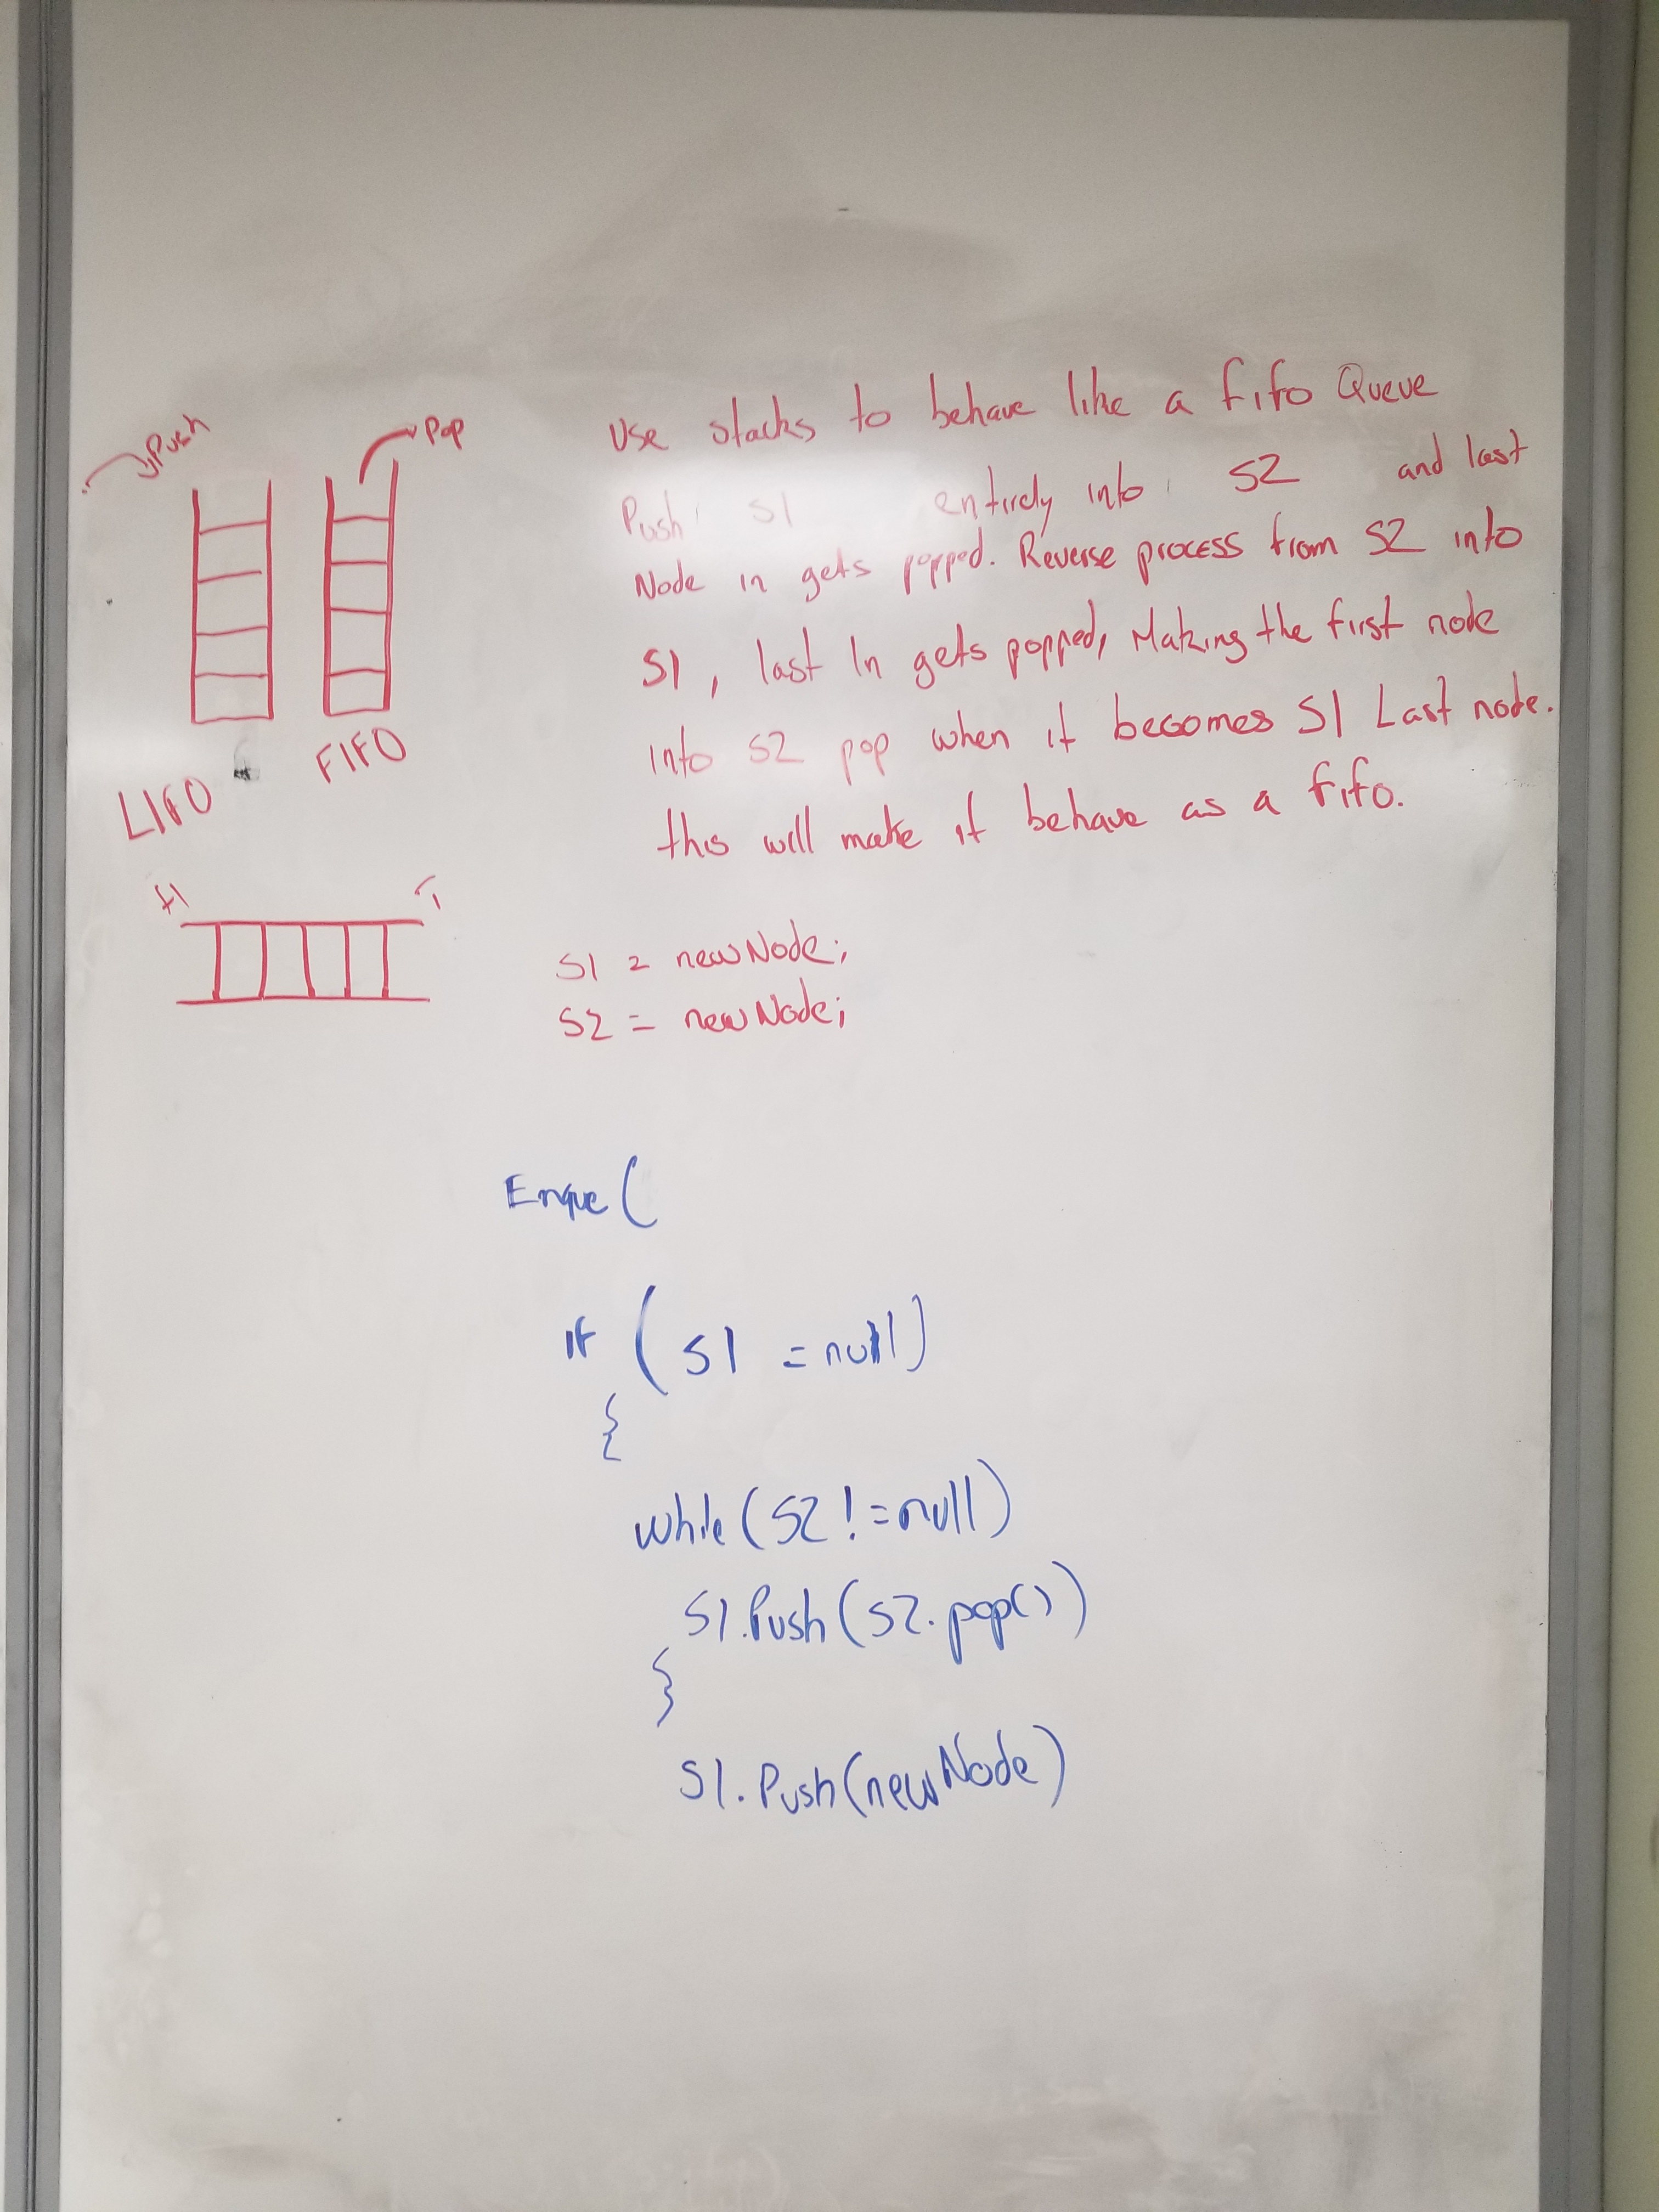 Push
Pop
LIFO
FIFO
H
T
Use stacks to behave like a fifo Queue
Push S1 entirely into S2 and last
Node in gets popped. Reverse process from S2 into
S1, last In gets popped, Making the first node
into S2 pop when it becomes S1 Last node.
this will make it behave as a fifo.
S1 = newNode;
S2 = newNode;
Enque (
if (S1 = null)
{
while (S2 != null)
S1.Push(S2.pop())
}
S1.Push(newNode)